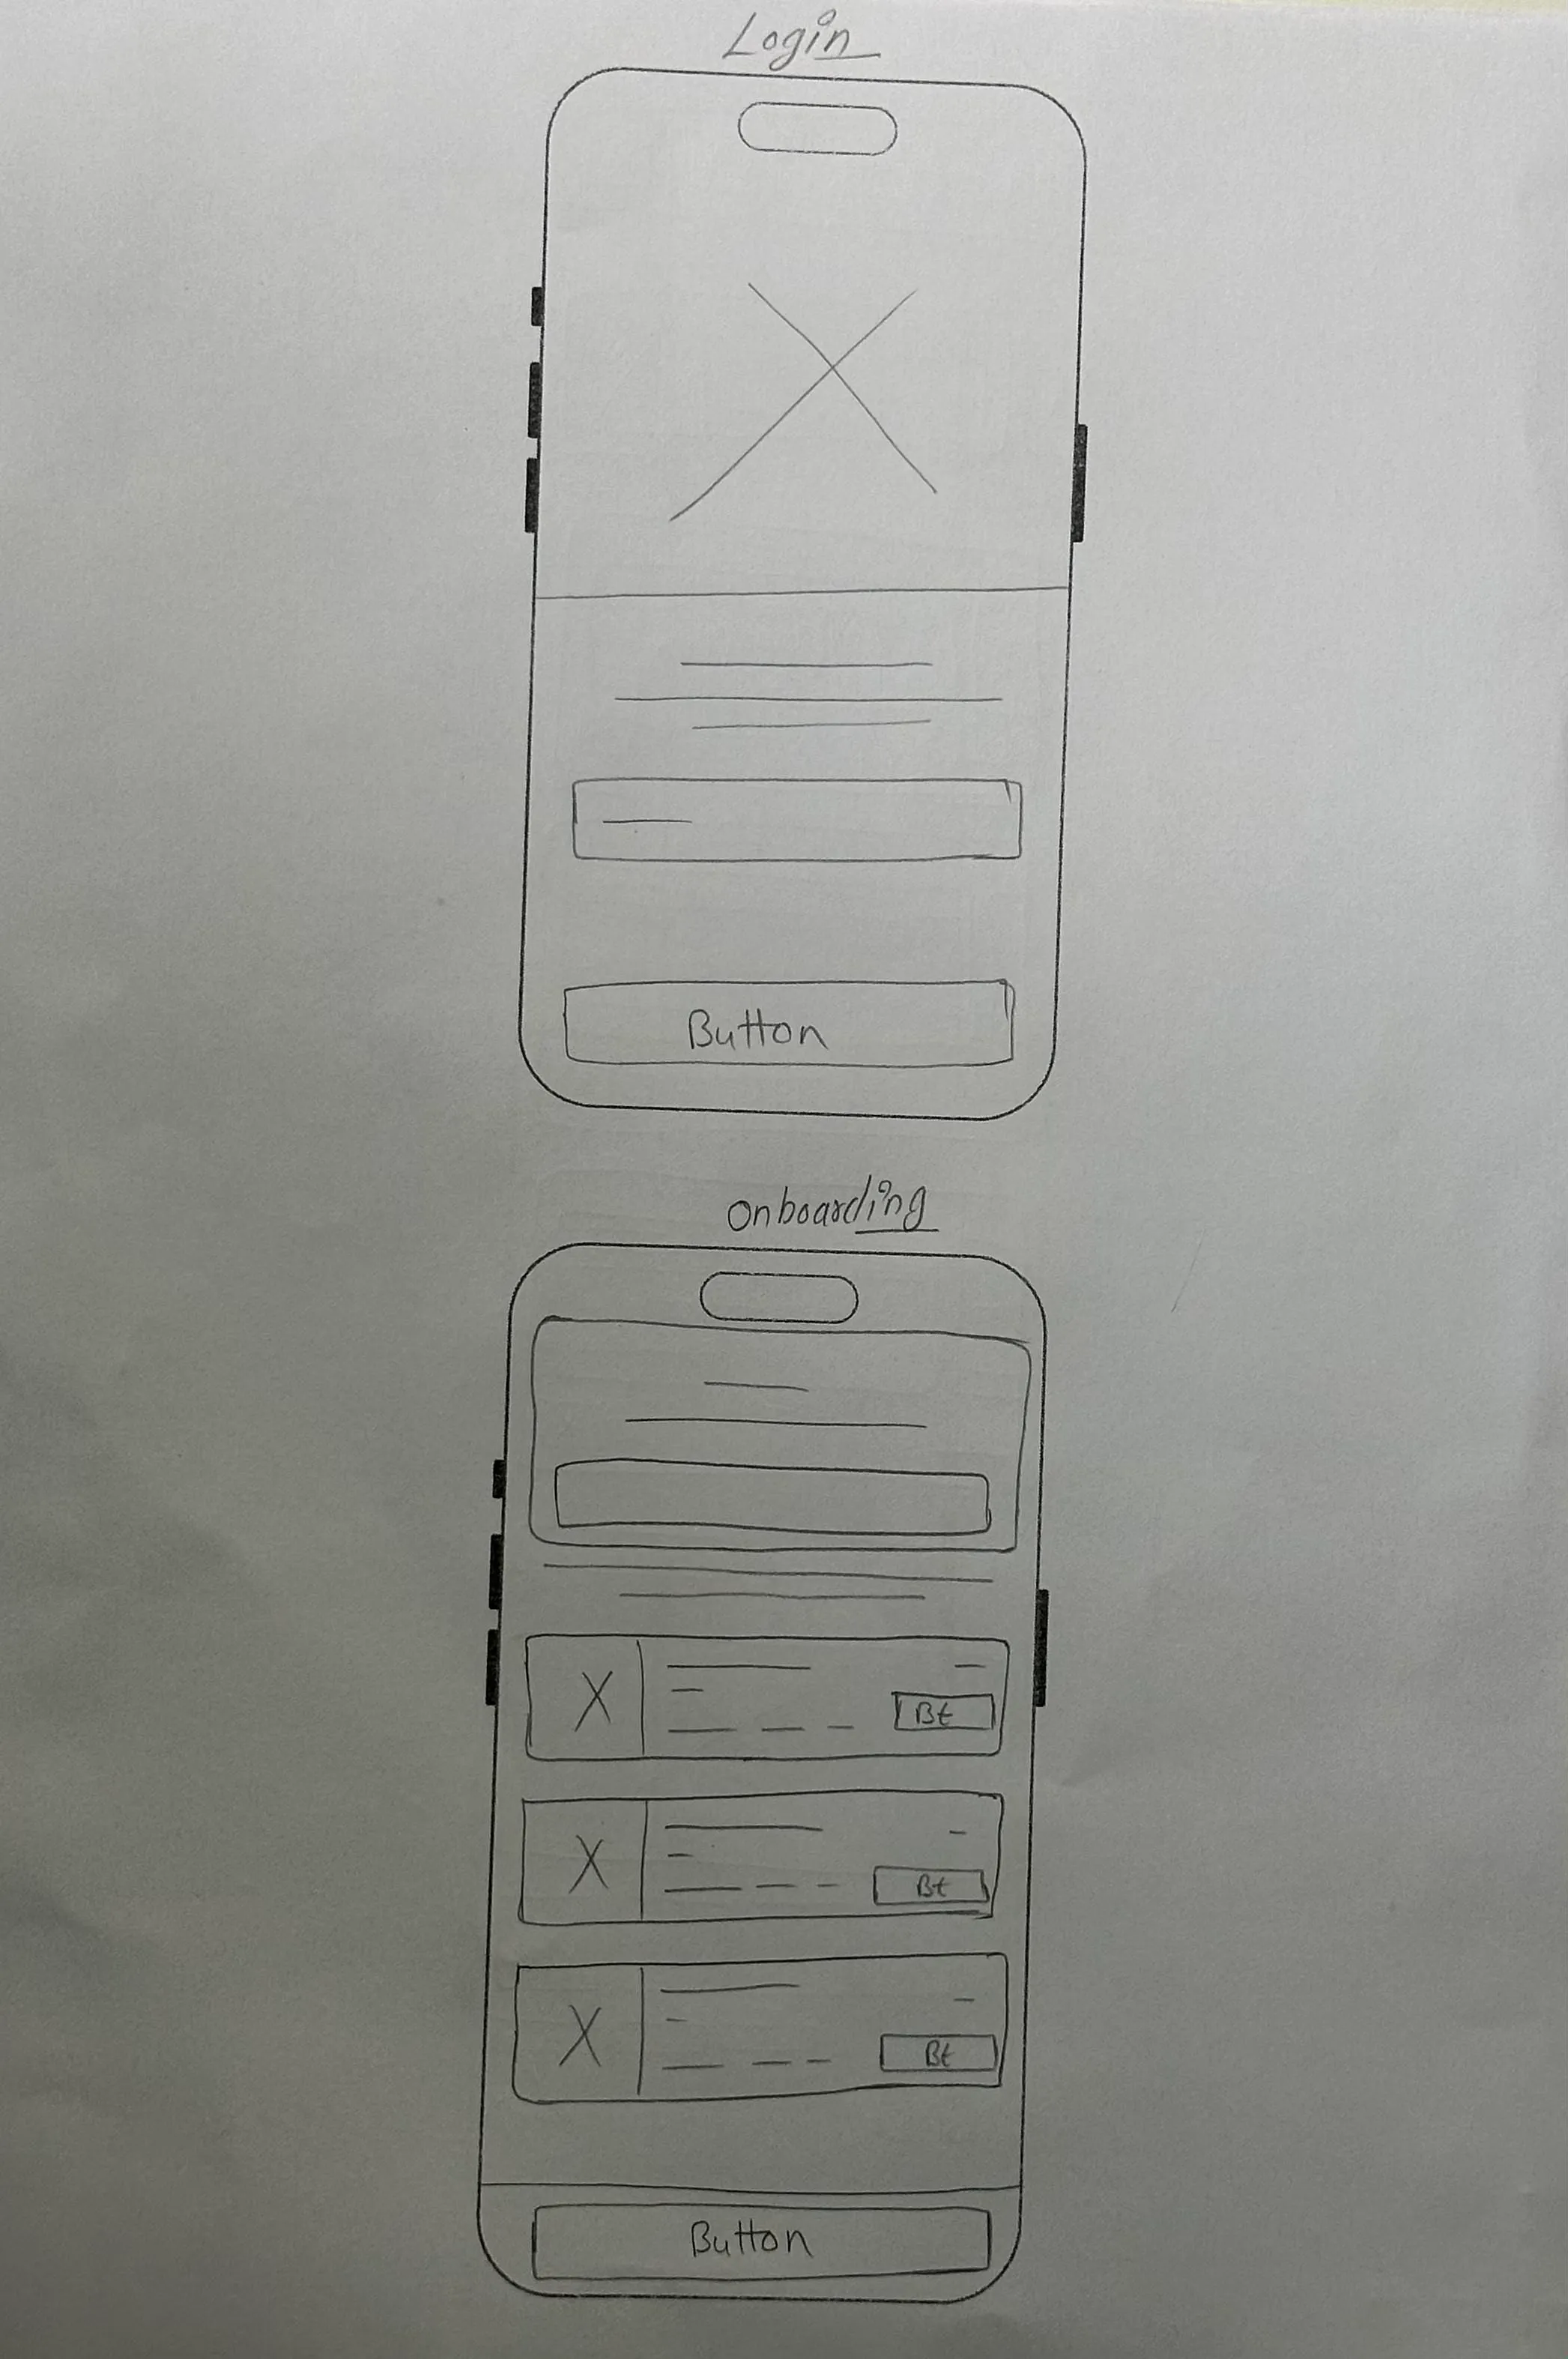 Login
Button
Onboarding
Bt
Bt
Bt
Button